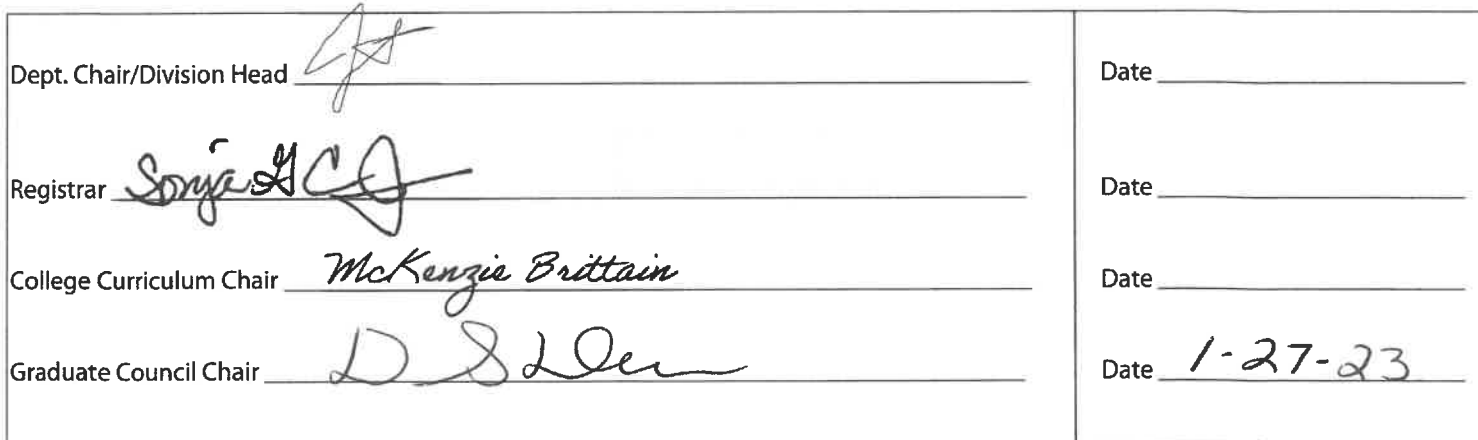 Dept. Chair/Division Head Date
Registrar Sonja G C Date
College Curriculum Chair McKenzie Brittain Date
Graduate Council Chair D S Date 1-27-23